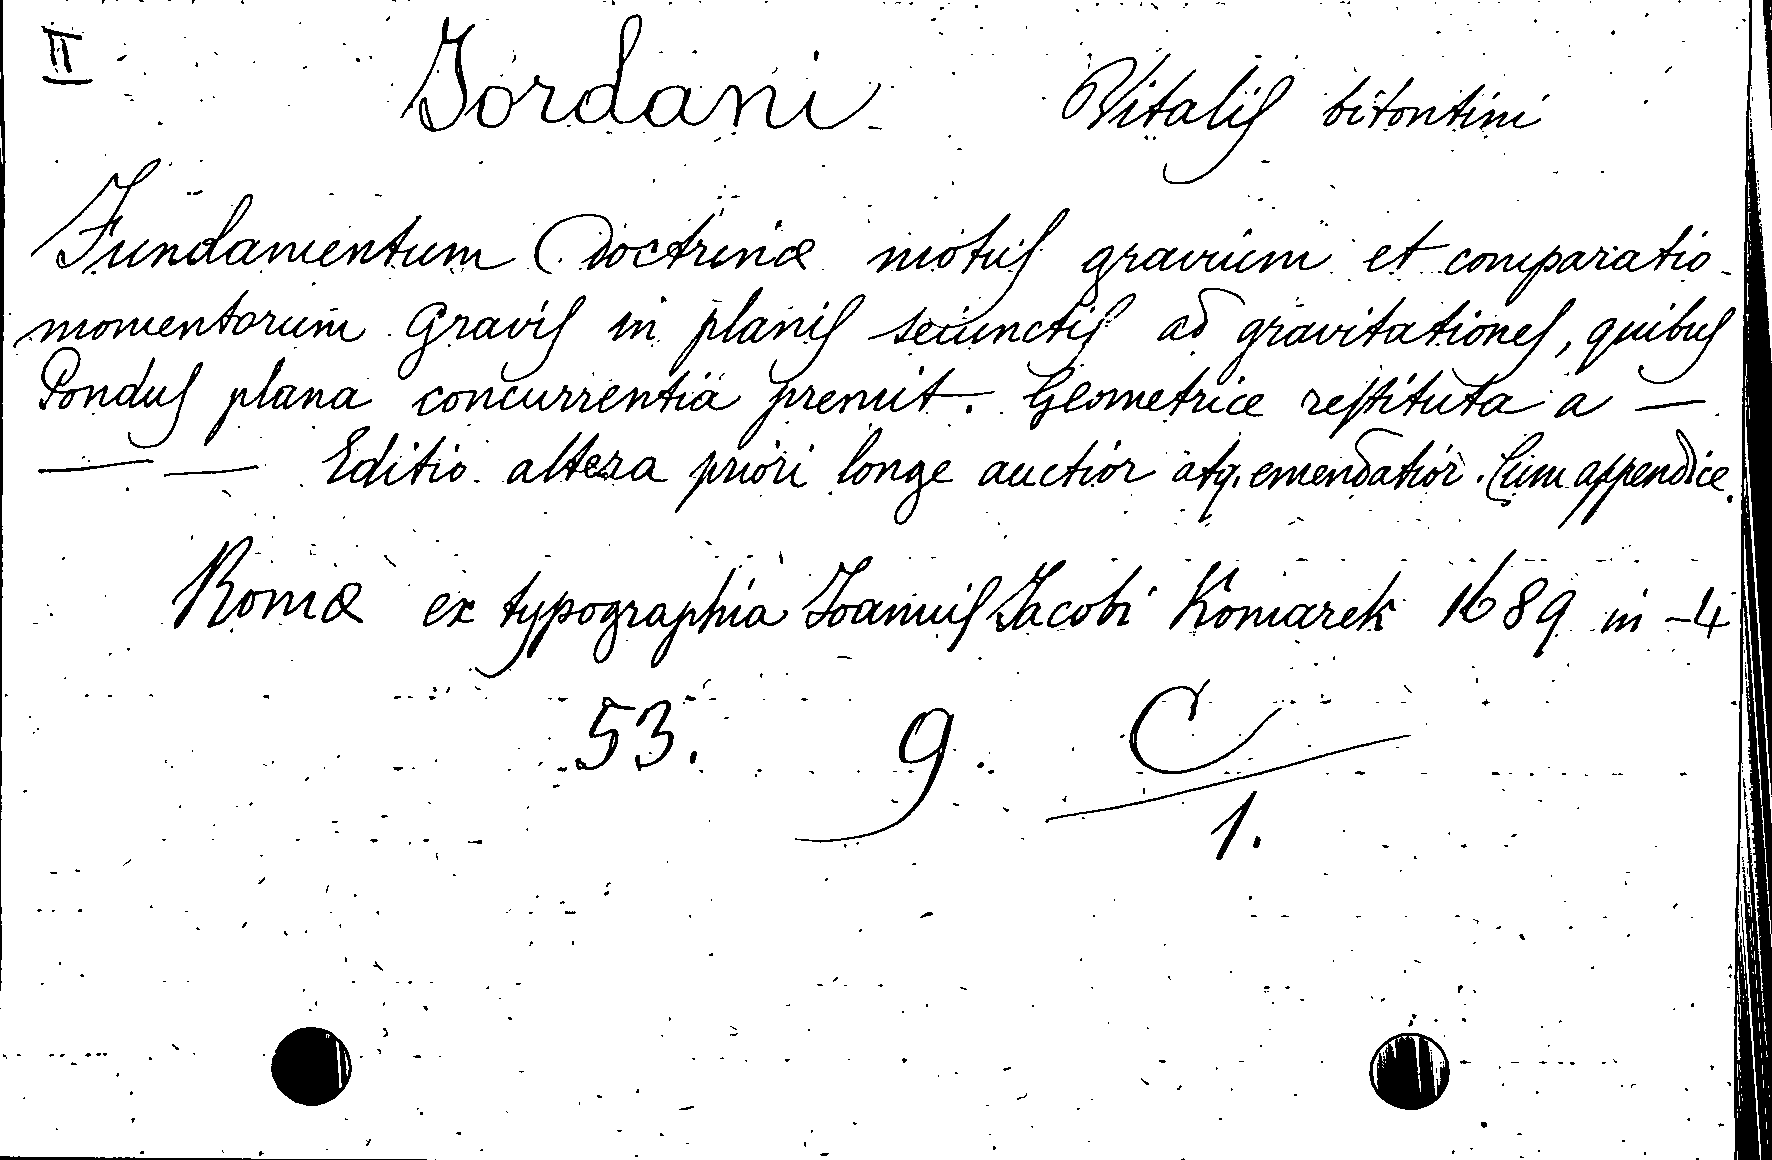 II
Jordani Vitalis bitontini
Fundamentum Doctrinæ motus gravium et comparatio
momentorum Gravis in planis seiunctis ad gravitationes, quibus
Pondus plana concurrentia premit. Geometrice restituta a —
— — Editio altera priori longe auctior atq. emendatior. Cum appendice.
Romæ ex typographia Joannis Jacobi Komarek 1689 in -4
53. 9. C
1.